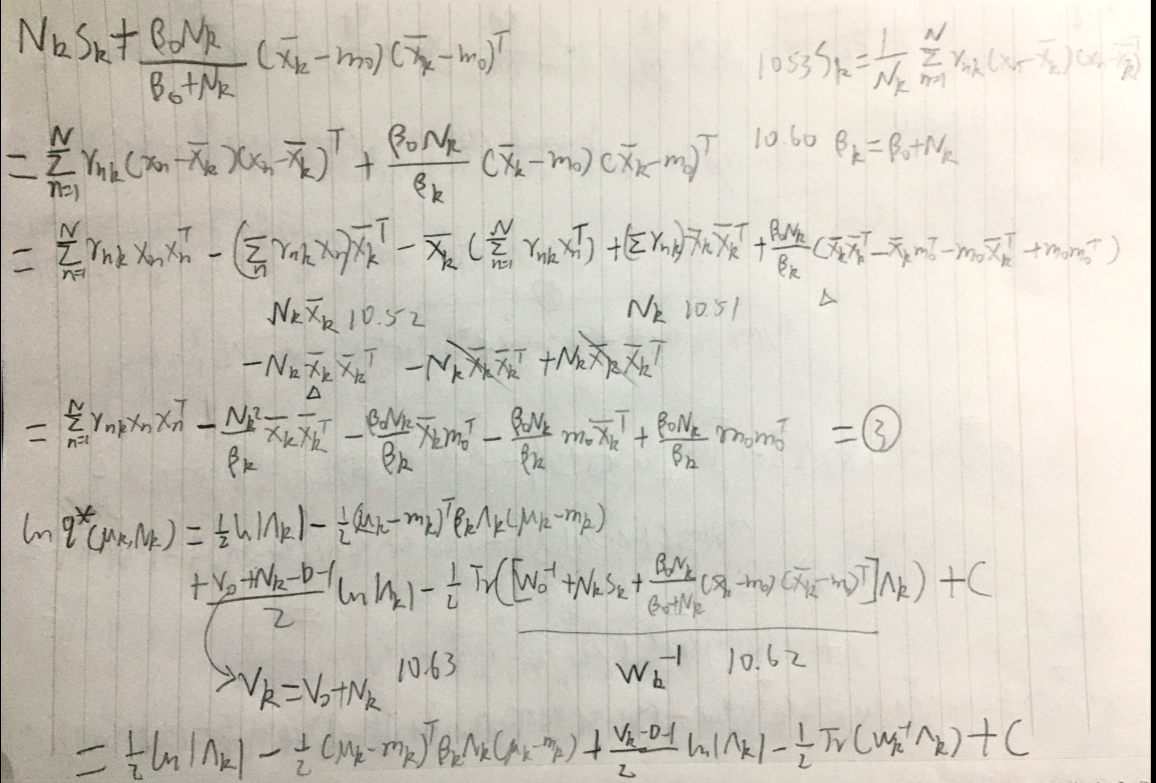 N_k S_k + \frac{β_0 N_k}{β_0+N_k} (\bar{x}_k - m_0)(\bar{x}_k - m_0)^T    10.53 S_k = \frac{1}{N_k} \sum_{n=1}^{N} r_{nk}(x_n - \bar{x}_k)(x_n - \bar{x}_k)^T
= \sum_{n=1}^{N} r_{nk}(x_n - \bar{x}_k)(x_n - \bar{x}_k)^T + \frac{β_0 N_k}{β_k} (\bar{x}_k - m_0)(\bar{x}_k - m_0)^T    10.60 β_k = β_0 + N_k
= \sum_{n=1}^{N} r_{nk} x_n x_n^T - (\sum_n r_{nk} x_n) \bar{x}_k^T - \bar{x}_k (\sum_{n=1}^{N} r_{nk} x_n^T) + (\sum r_{nk}) \bar{x}_k \bar{x}_k^T + \frac{β_0 N_k}{β_k} (\bar{x}_k \bar{x}_k^T - \bar{x}_k m_0^T - m_0 \bar{x}_k^T + m_0 m_0^T)
△
N_k \bar{x}_k 10.52    N_k 10.51
- N_k \bar{x}_k \bar{x}_k^T - N_k \bar{x}_k \bar{x}_k^T + N_k \bar{x}_k \bar{x}_k^T
△
= \sum_{n=1}^{N} r_{nk} x_n x_n^T - \frac{N_k^2}{β_k} \bar{x}_k \bar{x}_k^T - \frac{β_0 N_k}{β_k} \bar{x}_k m_0^T - \frac{β_0 N_k}{β_k} m_0 \bar{x}_k^T + \frac{β_0 N_k}{β_k} m_0 m_0^T = ③
ln q^*(μ_k, Λ_k) = \frac{1}{2} ln|Λ_k| - \frac{1}{2} (μ_k - m_k)^T β_k Λ_k (μ_k - m_k)
+ \frac{ν_0 + N_k - D - 1}{2} ln|Λ_k| - \frac{1}{2} Tr([W_0^{-1} + N_k S_k + \frac{β_0 N_k}{β_0+N_k} (\bar{x}_k - m_0)(\bar{x}_k - m_0)^T] Λ_k) + C
→ ν_k = ν_0 + N_k 10.63    W_k^{-1} 10.62
= \frac{1}{2} ln|Λ_k| - \frac{1}{2} (μ_k - m_k)^T β_k Λ_k (μ_k - m_k) + \frac{ν_k - D - 1}{2} ln|Λ_k| - \frac{1}{2} Tr(W_k^{-1} Λ_k) + C